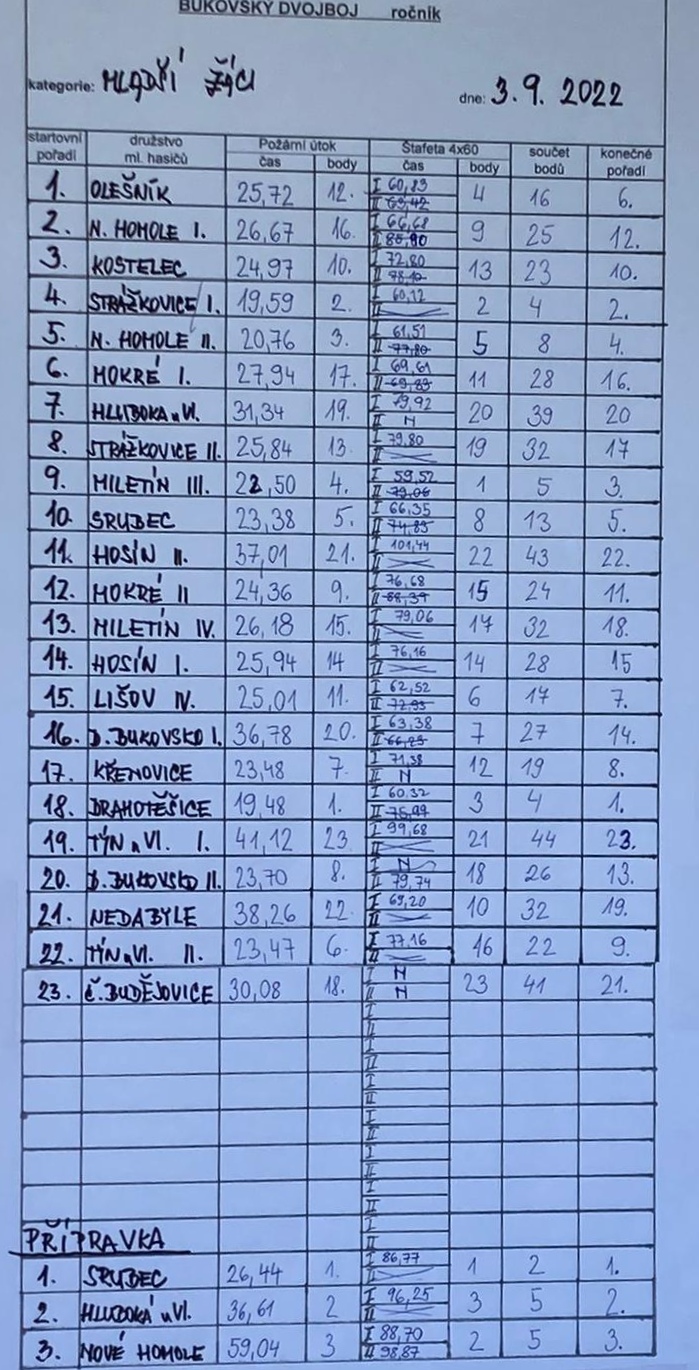 BUKOVSKÝ DVOJBOJ ročník
kategorie: MLADŠÍ ŽÁCI dne: 3.9. 2022
startovní pořadí družstvo ml. hasičů Požární útok čas body Štafeta 4x60 čas body součet bodů konečné pořadí
1. OLEŠNÍK 25,72 12. I 60,83 II 63,42 4 16 6.
2. N. HOMOLE I. 26,67 16. I 66,68 II 80,90 9 25 12.
3. KOSTELEC 24,97 10. I 72,80 II 78,10 13 23 10.
4. STRÁŽKOVICE I. 19,59 2. I 60,12 II 2 4 2.
5. N. HOMOLE II. 20,76 3. I 61,51 II 77,80 5 8 4.
6. MOKRÉ I. 27,94 17. I 69,61 II 69,83 11 28 16.
7. HLUBOKA n.Vl. 31,34 19. I 79,92 II N 20 39 20
8. STRÁŽKOVICE II. 25,84 13. I 79,80 II 19 32 17
9. MILETÍN III. 22,50 4. I 59,52 II 79,06 1 5 3.
10. SRUBEC 23,38 5. I 66,35 II 74,83 8 13 5.
11. HOSÍN II. 37,01 21. I 101,44 II 22 43 22.
12. MOKRÉ II 24,36 9. I 76,68 II 88,39 15 24 11.
13. MILETÍN IV. 26,18 15. I 79,06 II 17 32 18.
14. HOSÍN I. 25,94 14 I 76,16 II 14 28 15
15. LIŠOV IV. 25,01 11. I 62,52 II 72,93 6 17 7.
16. D. BUKOVSKO I. 36,78 20. I 63,38 II 66,25 7 27 14.
17. KŘENOVICE 23,48 7. I 71,38 II N 12 19 8.
18. DRAHOTĚŠICE 19,48 1. I 60,32 II 75,97 3 4 1.
19. TÝN n.Vl. I. 41,12 23 I 99,68 II 21 44 23.
20. D. BUKOVSKO II. 23,70 8. I N II 79,74 18 26 13.
21. NEDABYLE 38,26 22. I 69,20 II 10 32 19.
22. TÝN n.Vl. II. 23,47 6. I 77,16 II 16 22 9.
23. Č. BUDĚJOVICE 30,08 18. I N II N 23 41 21.
I II
I II
I II
I II
I II
I II
I II
PŘÍPRAVKA
1. SRUBEC 26,44 1. I 86,77 II 1 2 1.
2. HLUBOKÁ n.Vl. 36,61 2 I 96,25 II 3 5 2.
3. NOVÉ HOMOLE 59,04 3 I 88,70 II 98,87 2 5 3.